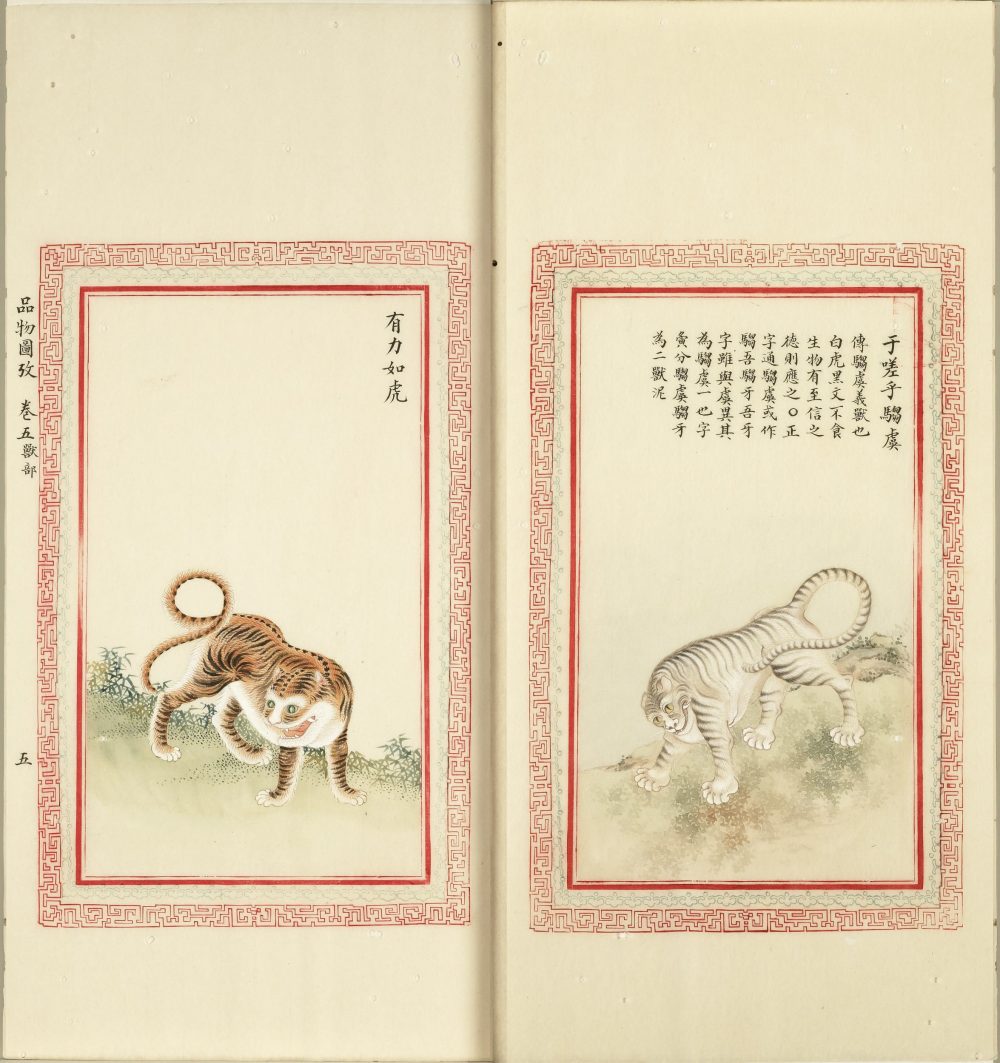 于嗟乎騶虞
傳騶虞義獸也
白虎黑文不食
生物有至信之
德則應之○正
字通騶虞或作
騶吾騶牙吾牙
字雖與虞異其
為騶虞一也字
彙分騶虞騶牙
為二獸泥
有力如虎
品物圖攷 卷五獸部 五